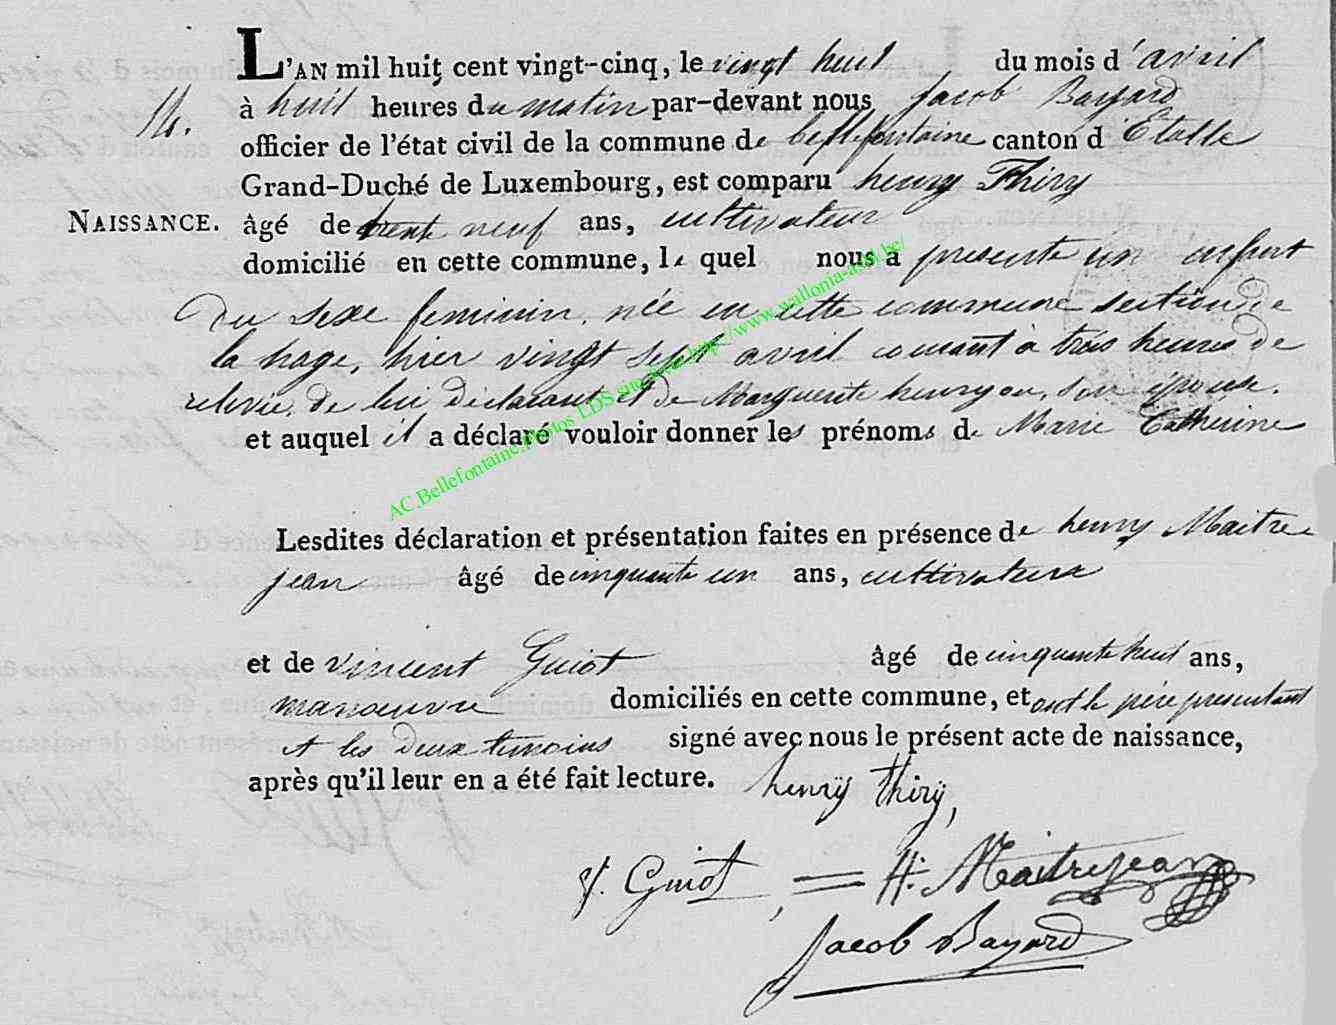 L'AN mil huit cent vingt-cinq, le vingt huit du mois d'avril
16. à huit heures du matin par-devant nous Jacob Bayard
officier de l'état civil de la commune de bellefontaine canton d'Etalle
Grand-Duché de Luxembourg, est comparu henry Thiry
NAISSANCE. âgé de trente neuf ans, cultivateur
domicilié en cette commune, le quel nous a presenté un enfant
Du sexe feminin, née en cette commune section de
la hage, hier vingt sept avril courant à trois heures de
relevée, de lui Déclarant et de Marguerite henryon, son épouse.
et auquel il a déclaré vouloir donner les prénoms de Marie Catherine
AC.Bellefontaine,photos LDS,site web http://www.wallonia-asbl.be/
Lesdites déclaration et présentation faites en présence de henry Maitre
jean âgé de cinquante un ans, cultivateur
et de vincent Guiot âgé de cinquante huit ans,
manoeuvre domiciliés en cette commune, et ont le père presentant
et les deux temoins signé avec nous le présent acte de naissance,
après qu'il leur en a été fait lecture. henrÿ thirÿ,
V. Guiot, H. Maitrejean
Jacob Bayard